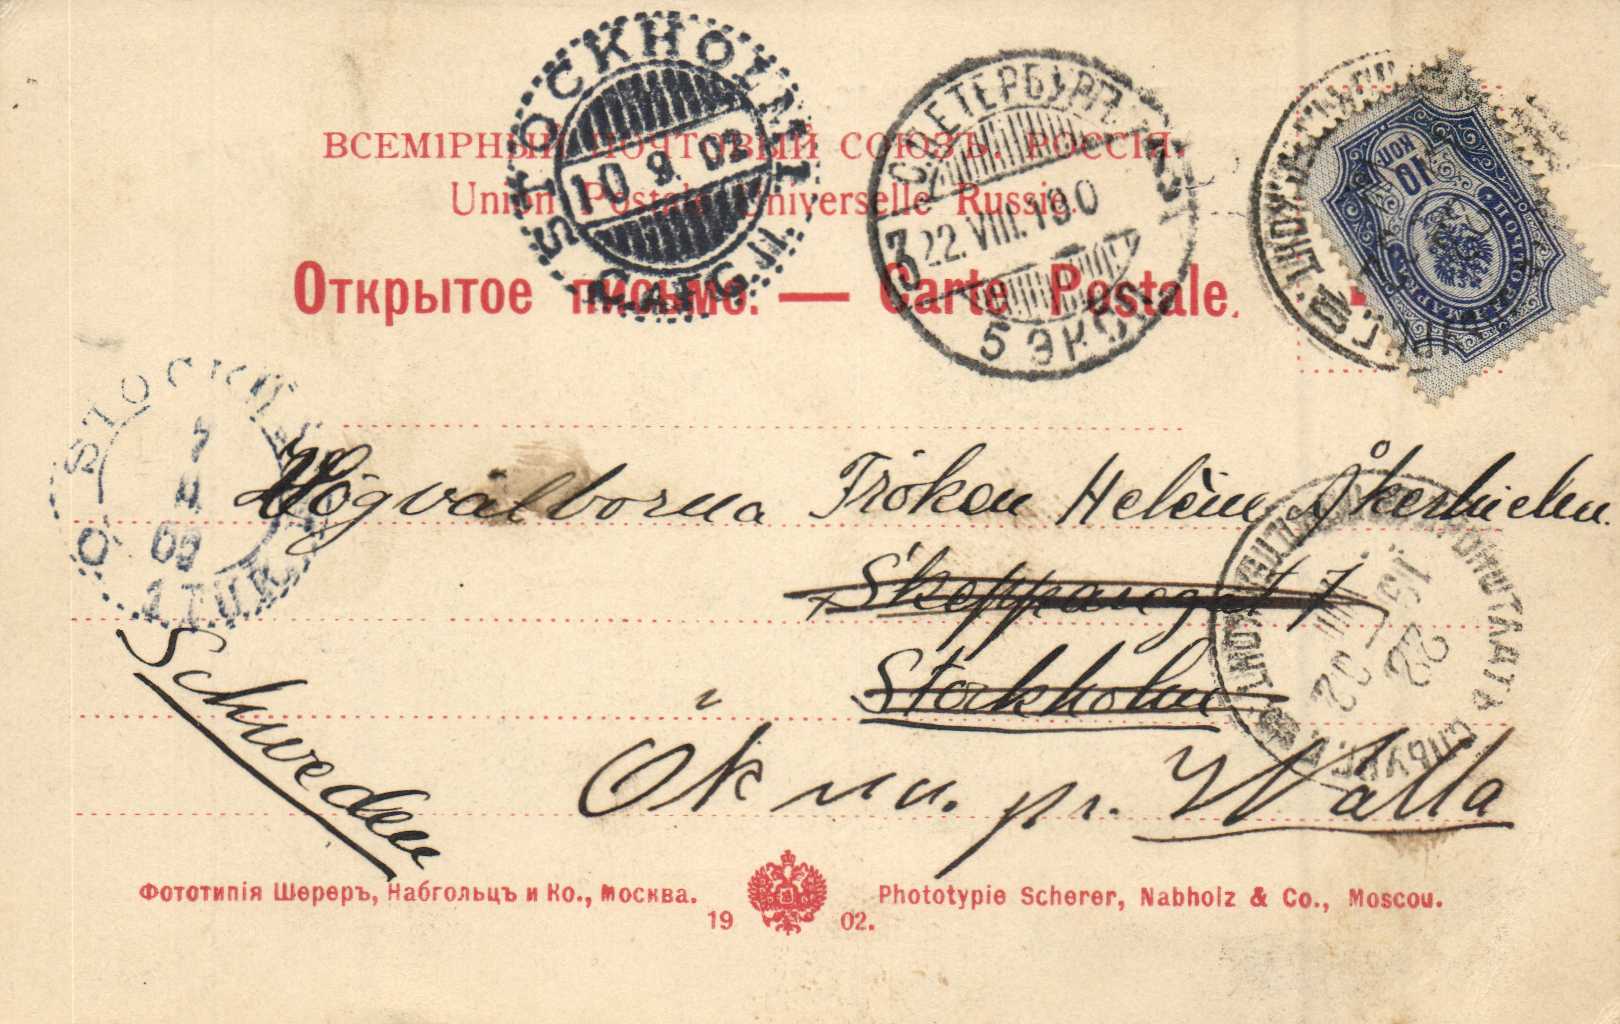 ВСЕМIРНЫЙ ПОЧТОВЫЙ СОЮЗЪ. РОССIЯ.
Union Postale Universelle Russie.
Открытое письмо. — Carte Postale.
STOCKHOLM
10 9 02
С.ПЕТЕРБУРГЪ
22.VIII.190
5 ЭКСП.
10 КОП.
STOCKHOLM
Högvälborna Fröken Helène Åkerhielm
Skepparegat 7
Stockholm
Ökna. pr. Walla
Schweden
22
Фототипiя Шереръ, Набгольцъ и Ко., Москва.
1902.
Phototypie Scherer, Nabholz & Co., Moscou.